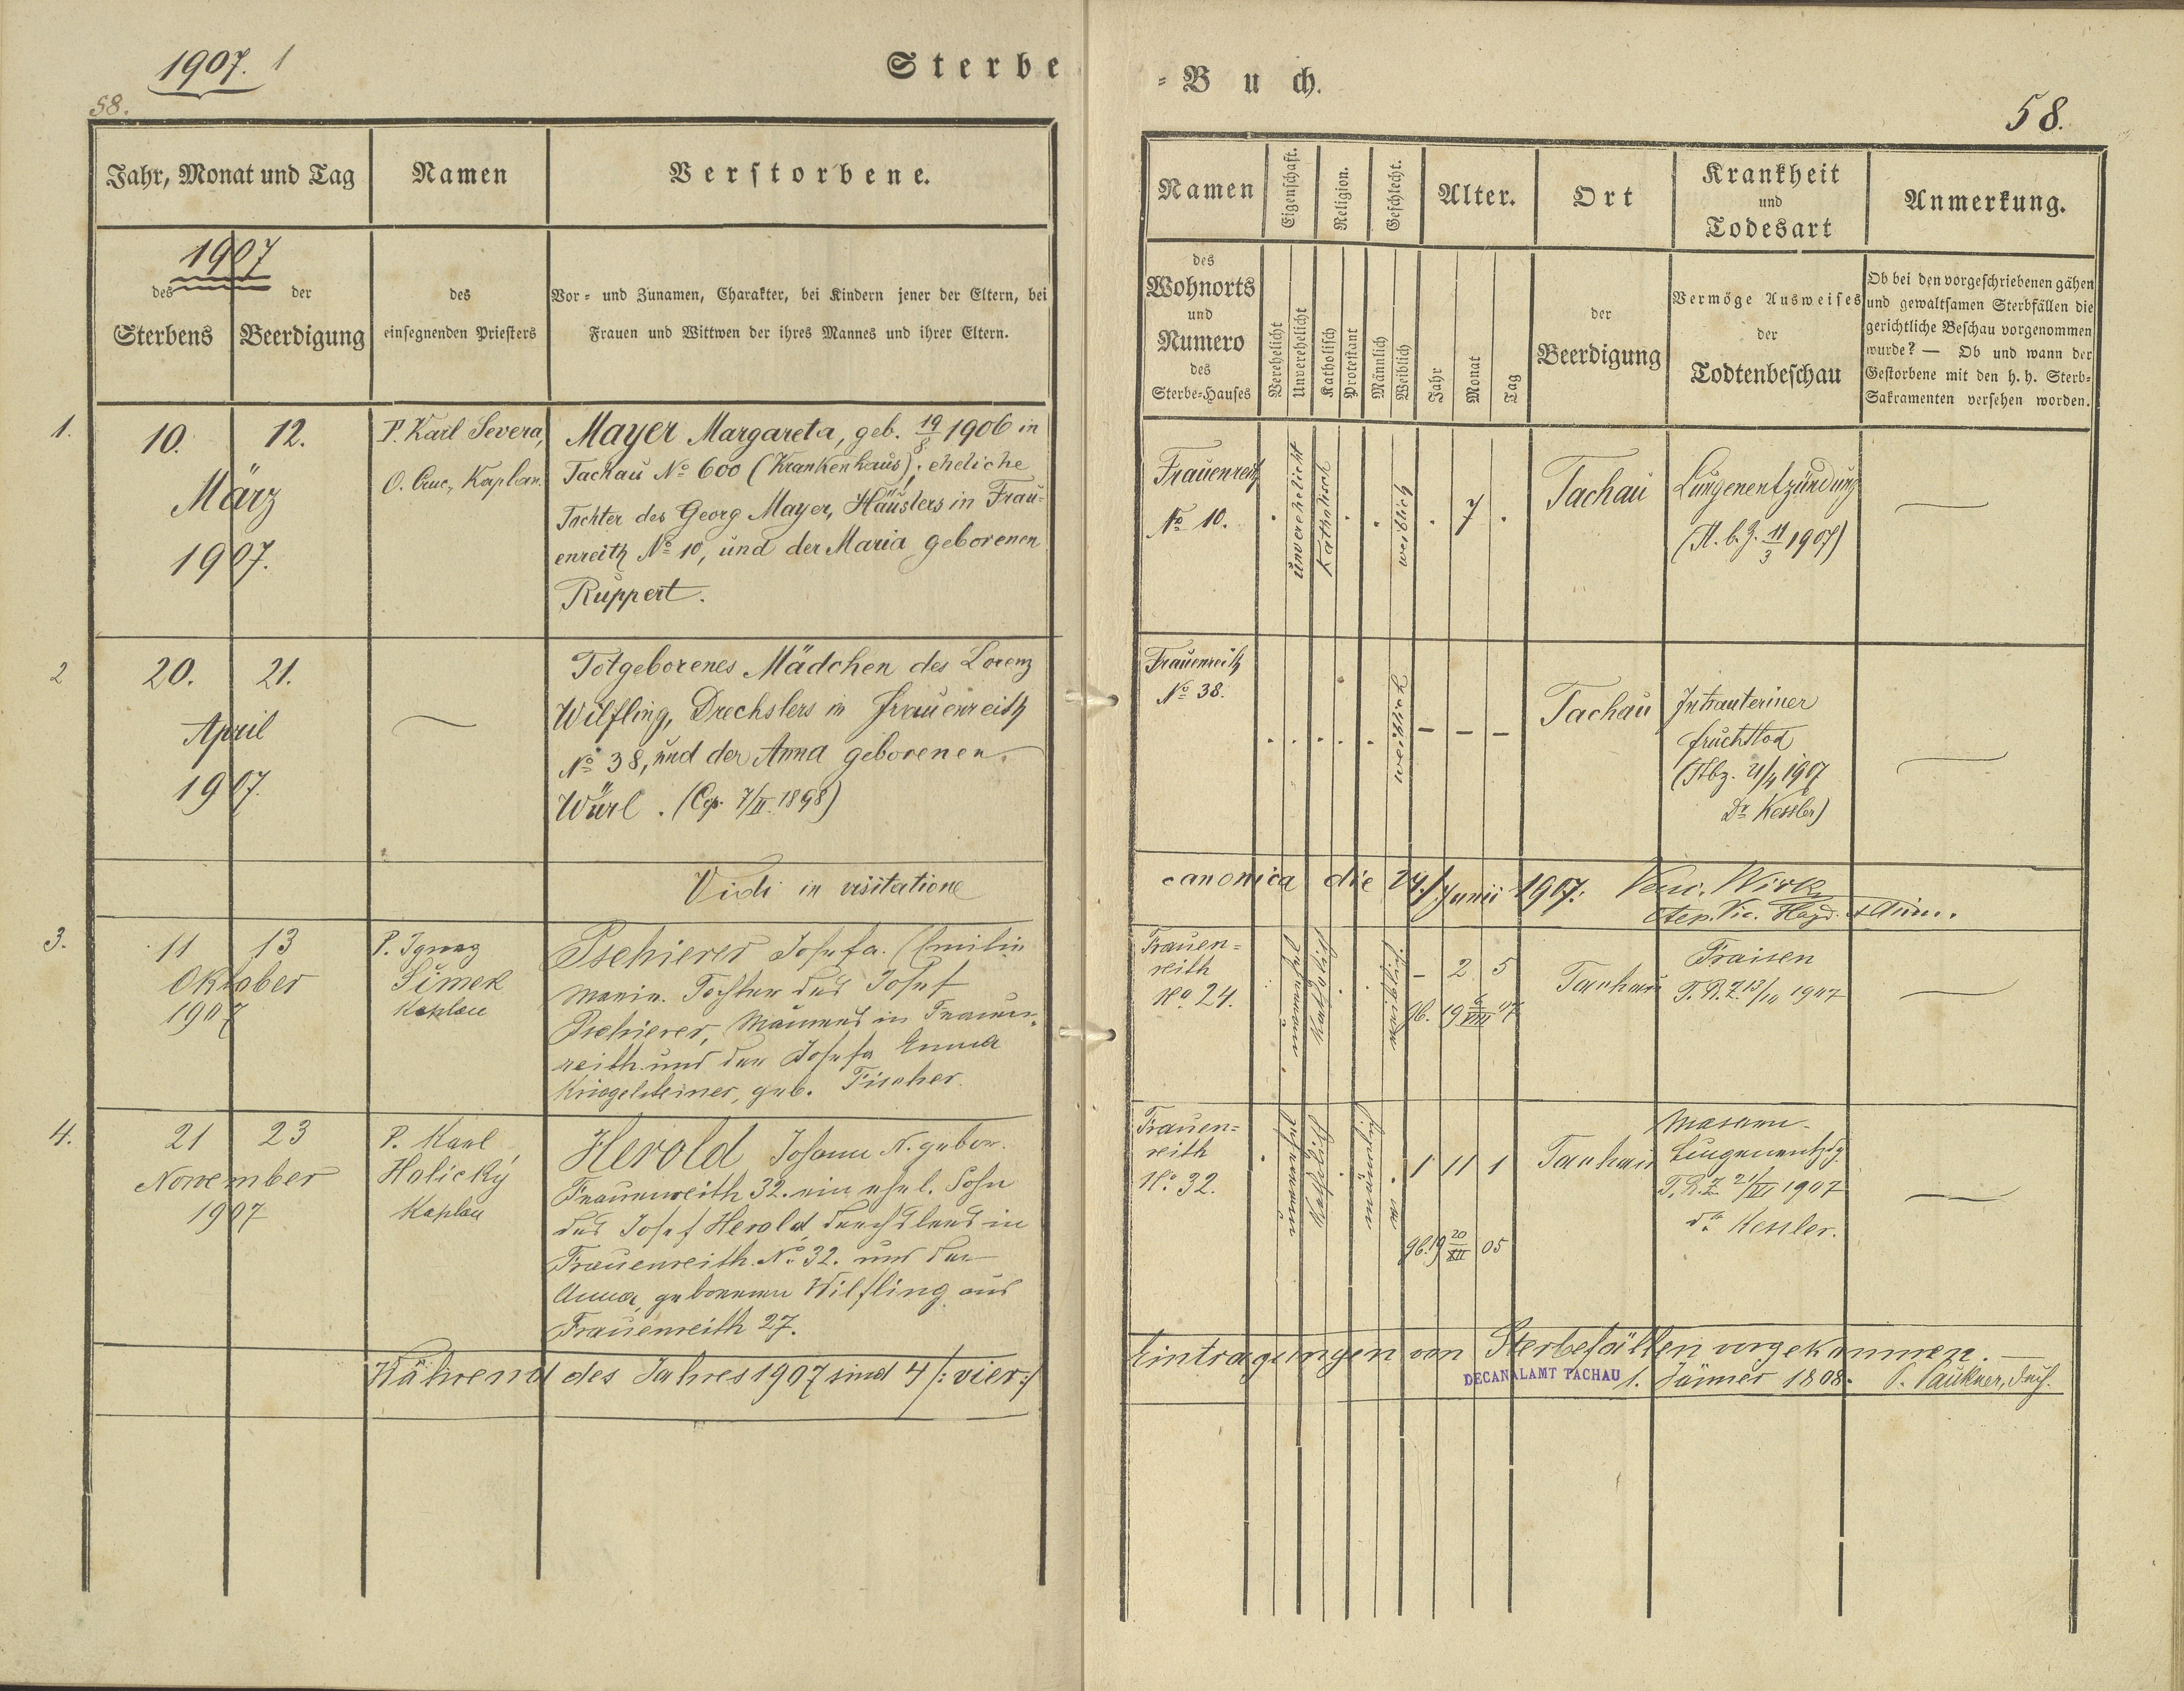 1907. 1
58.
Sterbe
Jahr, Monat und Tag
Namen
Verstorbene.
1907
des
Sterbens
der
Beerdigung
des
einsegnenden Priesters
Vor- und Zunamen, Charakter, bei Kindern jener der Eltern, bei
Frauen und Wittwen der ihres Mannes und ihrer Eltern.
1.
10. 12.
März
1907.
P. Karl Severa,
O. Cruc. Kaplan.
Mayer Margareta, geb. 19/8 1906 in
Tachau No 600 (Krankenhaus), eheliche
Tochter des Georg Mayer, Häuslers in Frau-
enreith No 10, und der Maria geborenen
Ruppert.
2
20. 21.
April
1907.
Totgeborenes Mädchen des Lorenz
Wilfling, Drechslers in Frauenreith
No 38, und der Anna geborenen
Würl. (Cop. 7/II. 1898)
Vidi in visitatione
3.
11 13
Oktober
1907
P. Ignaz
Šimek
Kaplan
Pschierer Josefa (Emilie
Maria. Tochter des Josef
Pschierer, Maurers in Frauen-
reith und der Josefa Anna
Kriegelsteiner, geb. Fischer.
4.
21 23
November
1907
P. Karl
Holický
Kaplan
Herold Johann N. gebor.
Frauenreith 32. ein ehel. Sohn
des Josef Herold, Drechslers in
Frauenreith No 32. und der
Anna, geborenen Wilfling aus
Frauenreith 27.
Während des Jahres 1907 sind 4 /: vier :/
-Buch.
58.
Namen
Eigenschaft.
Religion.
Geschlecht.
Alter.
Ort
Krankheit
und
Todesart
Anmerkung.
des
Wohnorts
und
Numero
des
Sterbe-Hauses
Verehelicht
Unverehelicht
Katholisch
Protestant
Männlich
Weiblich
Jahr
Monat
Tag
der
Beerdigung
Vermöge Ausweises
der
Todtenbeschau
Ob bei den vorgeschriebenen gähen
und gewaltsamen Sterbfällen die
gerichtliche Beschau vorgenommen
wurde? — Ob und wann der
Gestorbene mit den h. h. Sterb-
Sakramenten versehen worden.
Frauenreith
No 10.
unverehelicht
Katholisch
weiblich
7
Tachau
Lungenentzündung
(T. b. Z. 11/3 1907)
Frauenreith
No 38.
weiblich
- - -
Tachau
Intrauteriner
Fruchttod
(Tbz. 21/4 1907
Dr. Kessler)
canonica die 24./ Junii 1907.
Frauen-
reith
No 24.
unverehel
Katholisch
weiblich
- 2 5
gb. 19 6/VIII 07
Tachau
Fraisen
T. B. Z. 13/10 1907
Frauen-
reith
No. 32.
unverehel
Katholisch
männlich
1 11 1
gb. 19 20/XII 05
Tachau
Masern-
Lungenentzdg.
T. B. Z. 21/XI 1907
Dr. Kessler.
Eintragungen von Sterbefällen vorgekommen.
DECANALAMT TACHAU
1. Jänner 1808.